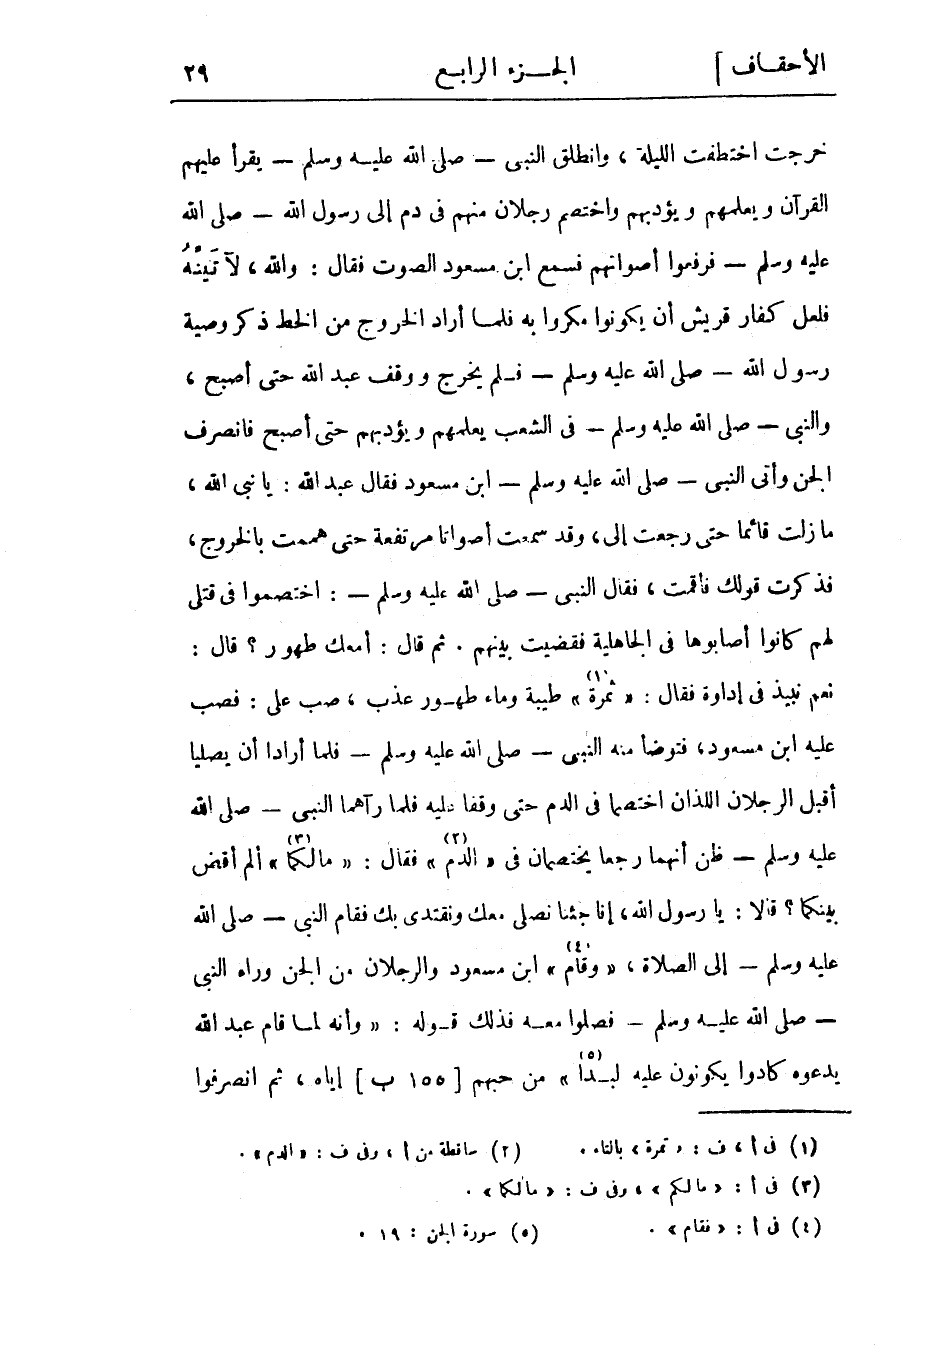 الأحقـاف ] الجـزء الرابـع ٢٩
خرجت اختطفت الليلة ، وانطلق النبى — صلى الله عليـه وسلم — يقرأ عليهم
القرآن ويعلمهم ويؤدبهم واختصم رجلان منهم فى دم إلى رسول الله — صلى الله
عليه وسلم — فرفعوا أصواتهم فسمع ابن مسعود الصوت فقال : والله ، لآتَيِنَّهُ
فلعل كفار قريش أن يكونوا مكروا به فلمـا أراد الخروج من الخط ذكر وصية
رسول الله — صلى الله عليه وسلم — فـلم يخرج ووقف عبد الله حتى أصبح ،
والنبى — صلى الله عليه وسلم — فى الشعب يعلمهم ويؤدبهم حتى أصبح فانصرف
الجن وأتى النبى — صلى الله عليه وسلم — ابن مسعود فقال عبد الله : يا نبى الله ،
ما زلت قائما حتى رجعت إلى ، وقد سمعت أصواتا مرتفعة حتى هممت بالخروج ،
فذكرت قولك فأقمت ، فقال النبى — صلى الله عليه وسلم — : اختصموا فى قتلى
لهم كانوا أصابوها فى الجاهلية فقضيت بينهم . ثم قال : أمعك طهور ؟ قال :
نعم نبيذ فى إداوة فقال : « ثمرة (١) » طيبة وماء طهـور عذب ، صب على : فصب
عليه ابن مسعود ، فتوضأ منه النبى — صلى الله عليه وسلم — فلما أرادا أن يصليا
أقبل الرجلان اللذان اختصما فى الدم حتى وقفا عليه فلما رآهما النبى — صلى الله
عليه وسلم — ظن أنهما رجعا يختصمان فى « الدم (٢) » فقال : « مالكما (٣) » ألم أقض
بينكما ؟ قالا : يا رسول الله ، إنا جئنا نصلى معك ونقتدى بك فقام النبى — صلى الله
عليه وسلم — إلى الصلاة ، « وقام (٤) » ابن مسعود والرجلان من الجن وراء النبى
— صلى الله عليـه وسلم — فصلوا معـه فذلك قـوله : « وأنه لمـا قام عبد الله
يدعوه كادوا يكونون عليه لبـدا (٥) » من حبهم [ ١٥٥ ب ] إياه ، ثم انصرفوا
(١) فى أ ، ف : « تمرة » بالتاء . (٢) ساقطة من أ ، وفى ف : « الدم » .
(٣) فى أ : « مالكم » ، وفى ف : « مالكما » .
(٤) فى أ : « فقام » . (٥) سورة الجن : ١٩ .